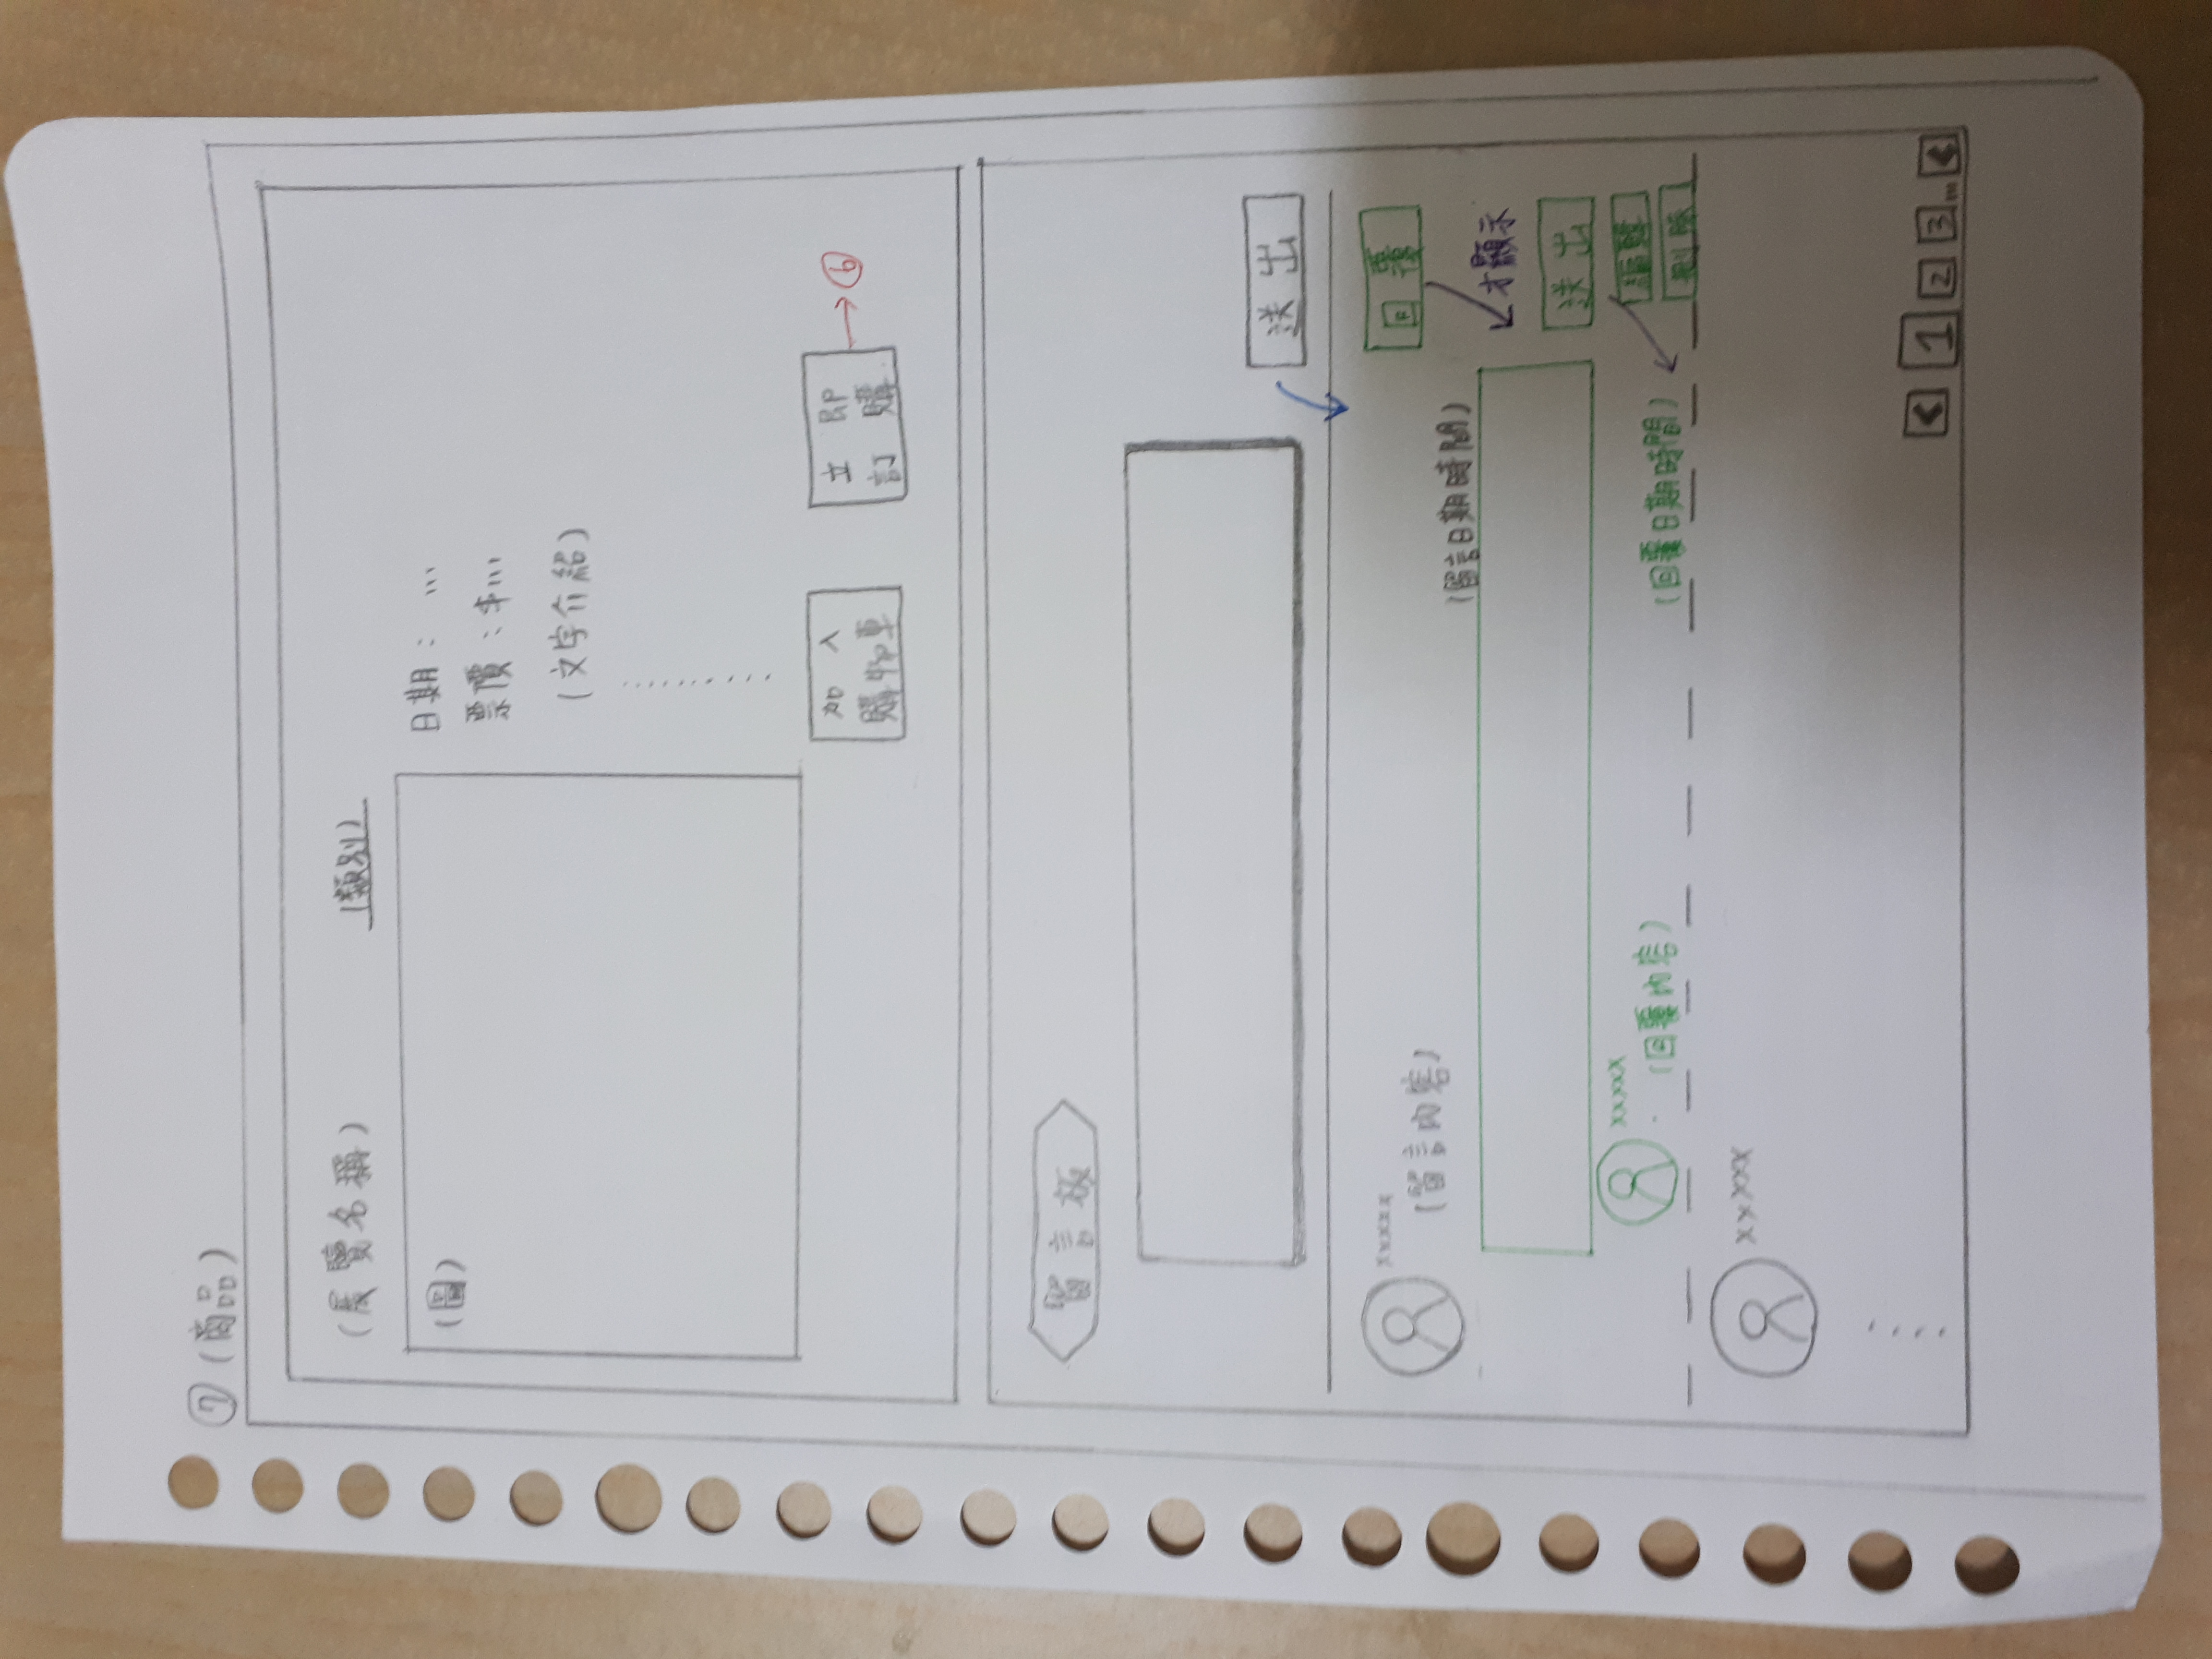 ⑦ (商品)
(展覽名稱) (類別)
(圖)
日期： ...
票價：$...
(文字介紹)
加入
購物車
立即
訂購
→⑥
留言板
送出
xxxxx
回覆
(留言內容)
(留言日期時間)
才顯示
送出
xxxxx
編輯
(回覆內容)
(回覆日期時間)
刪除
xxxxx
< 1 2 3 ... <